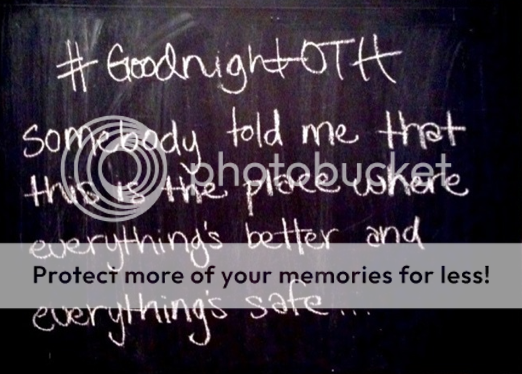 #GoodnightOTH
somebody told me that
photobucket
this is the place where
everything's better and
Protect more of your memories for less!
everything's safe...